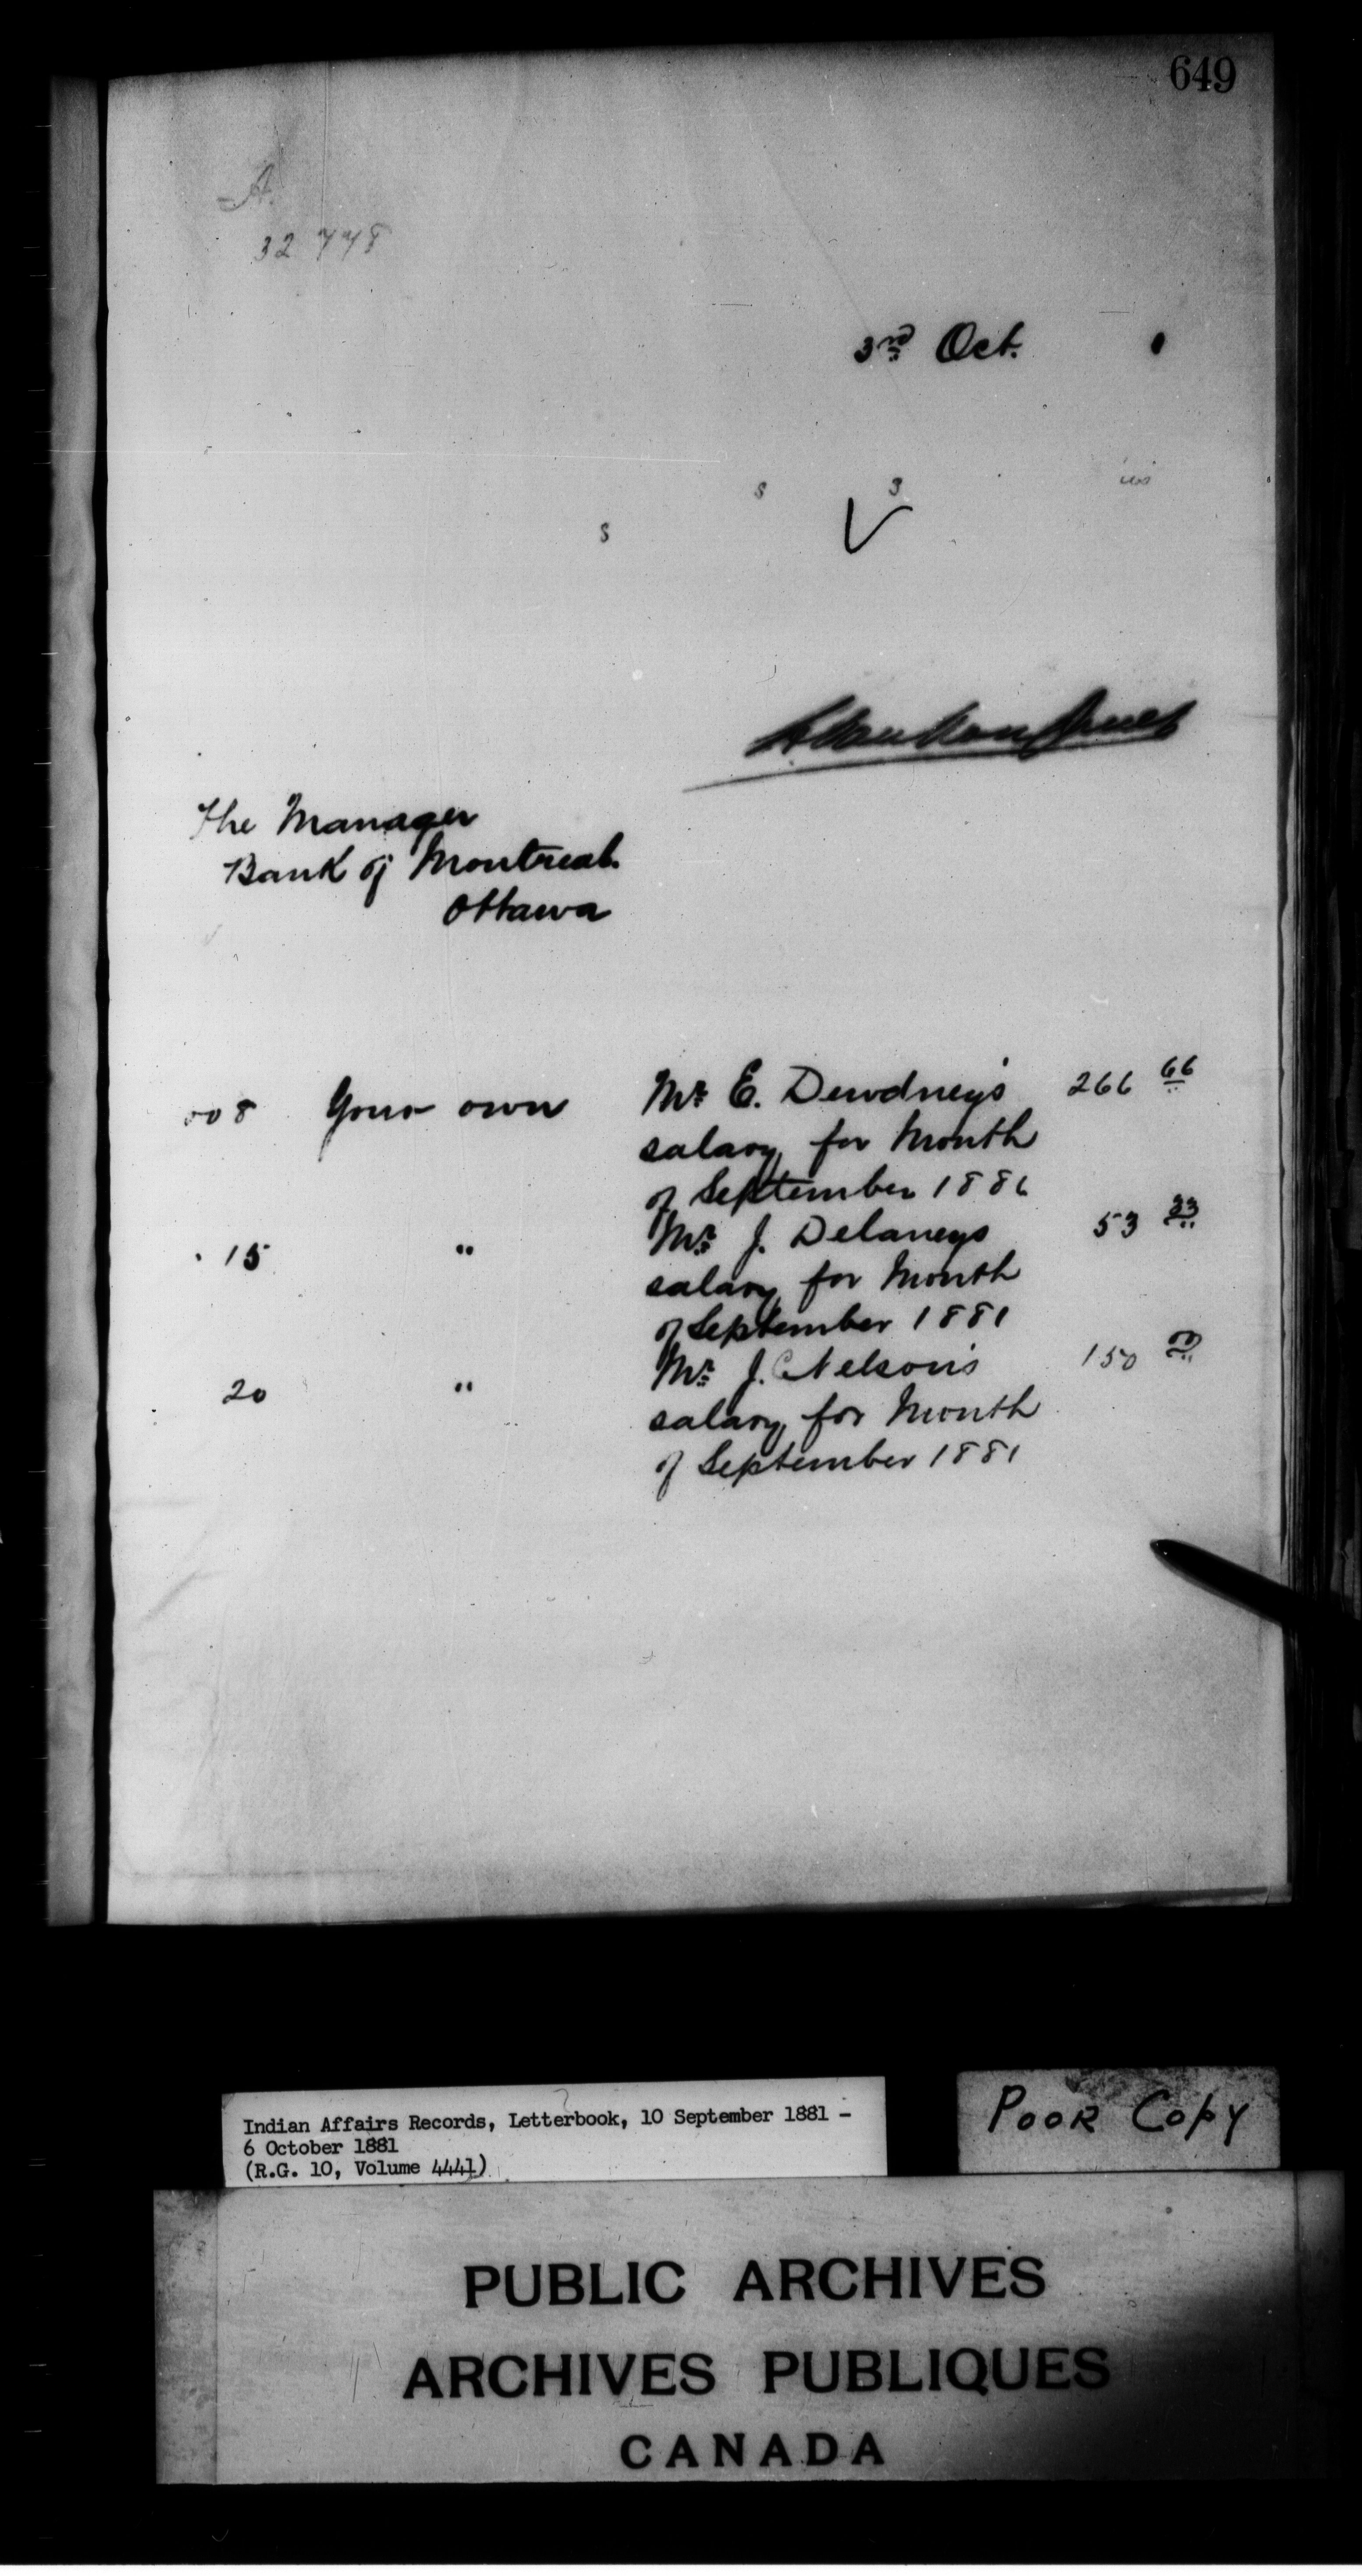 649
A.
32 778
3rd Oct. 1
s 3
s V
The Manager
Bank of Montreal
Ottawa
008 Your own Mr. E. Dewdney's 266 66
salary for Month
of September 1881
15 " Mr. J. Delaneys 53 33
salary for Month
of September 1881
20 " Mr. J. C Nelson's 150 00
salary for Month
of September 1881
Indian Affairs Records, Letterbook, 10 September 1881 -
6 October 1881
(R.G. 10, Volume 4441)
POOR COPY
PUBLIC ARCHIVES
ARCHIVES PUBLIQUES
CANADA